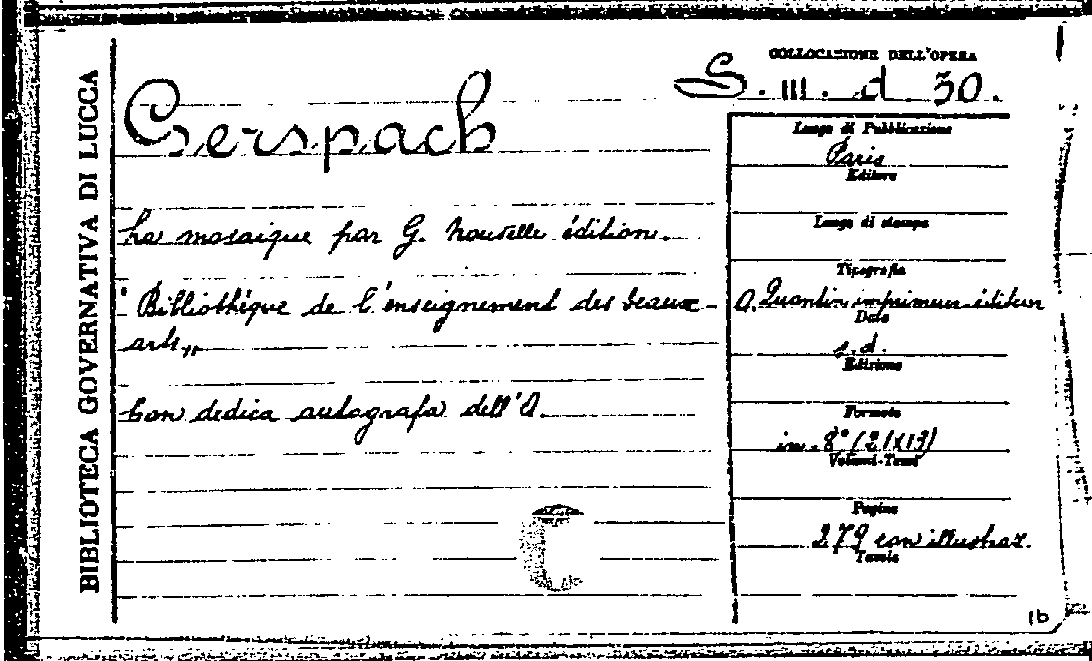 BIBLIOTECA GOVERNATIVA DI LUCCA
COLLOCAZIONE DELL'OPERA
S. III. d. 30.
Gerspach
La mosaïque par G. Nouvelle édition.
"Bibliothèque de l'enseignement des beaux-
arts„
Con dedica autografa dell'A.
Luogo di Pubblicazione
Paris
Editore
Luogo di stampa
Tipografia
A. Quantin imprimeur-éditeur
Data
s.d.
Edizione
Formato
in-8° (21x13)
Volumi-Tomi
Pagine
279 con illustraz.
Tavole
1b